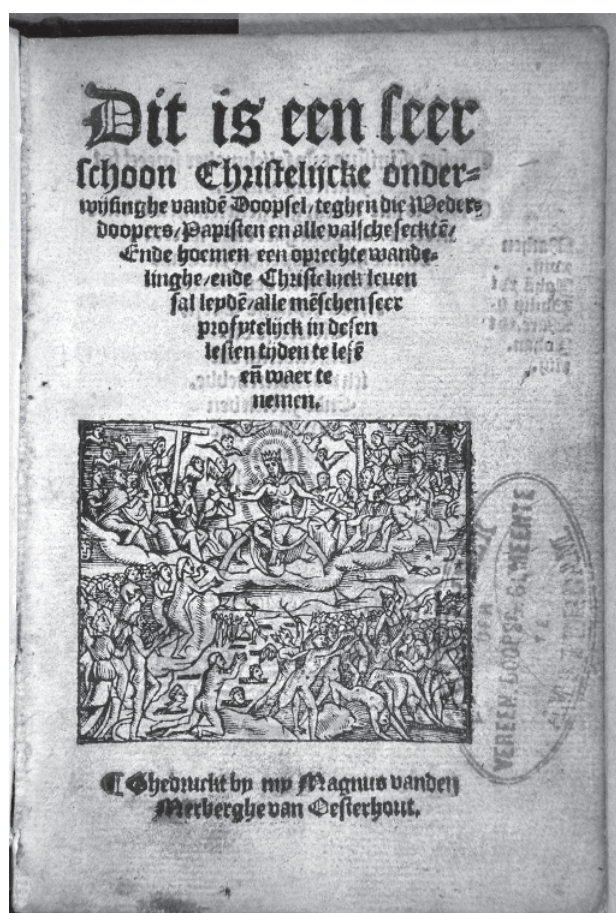 Dit is een seer
schoon Christelijcke onder=
wijsinghe vandē Doopsel, teghen die Weder=
doopers/Papisten en alle valsche secktē/
Ende hoemen een oprechte wande=
linghe/ende Christelijck leuen
sal leydē/alle mēschen seer
profytelijck in desen
lesten tijden te lesē
eñ waer te
nemen.
¶ Ghedruckt by my Magnus vanden
Merberghe van Oesterhout.
DER
VEREEN. DOOPSG. GEMEENTE